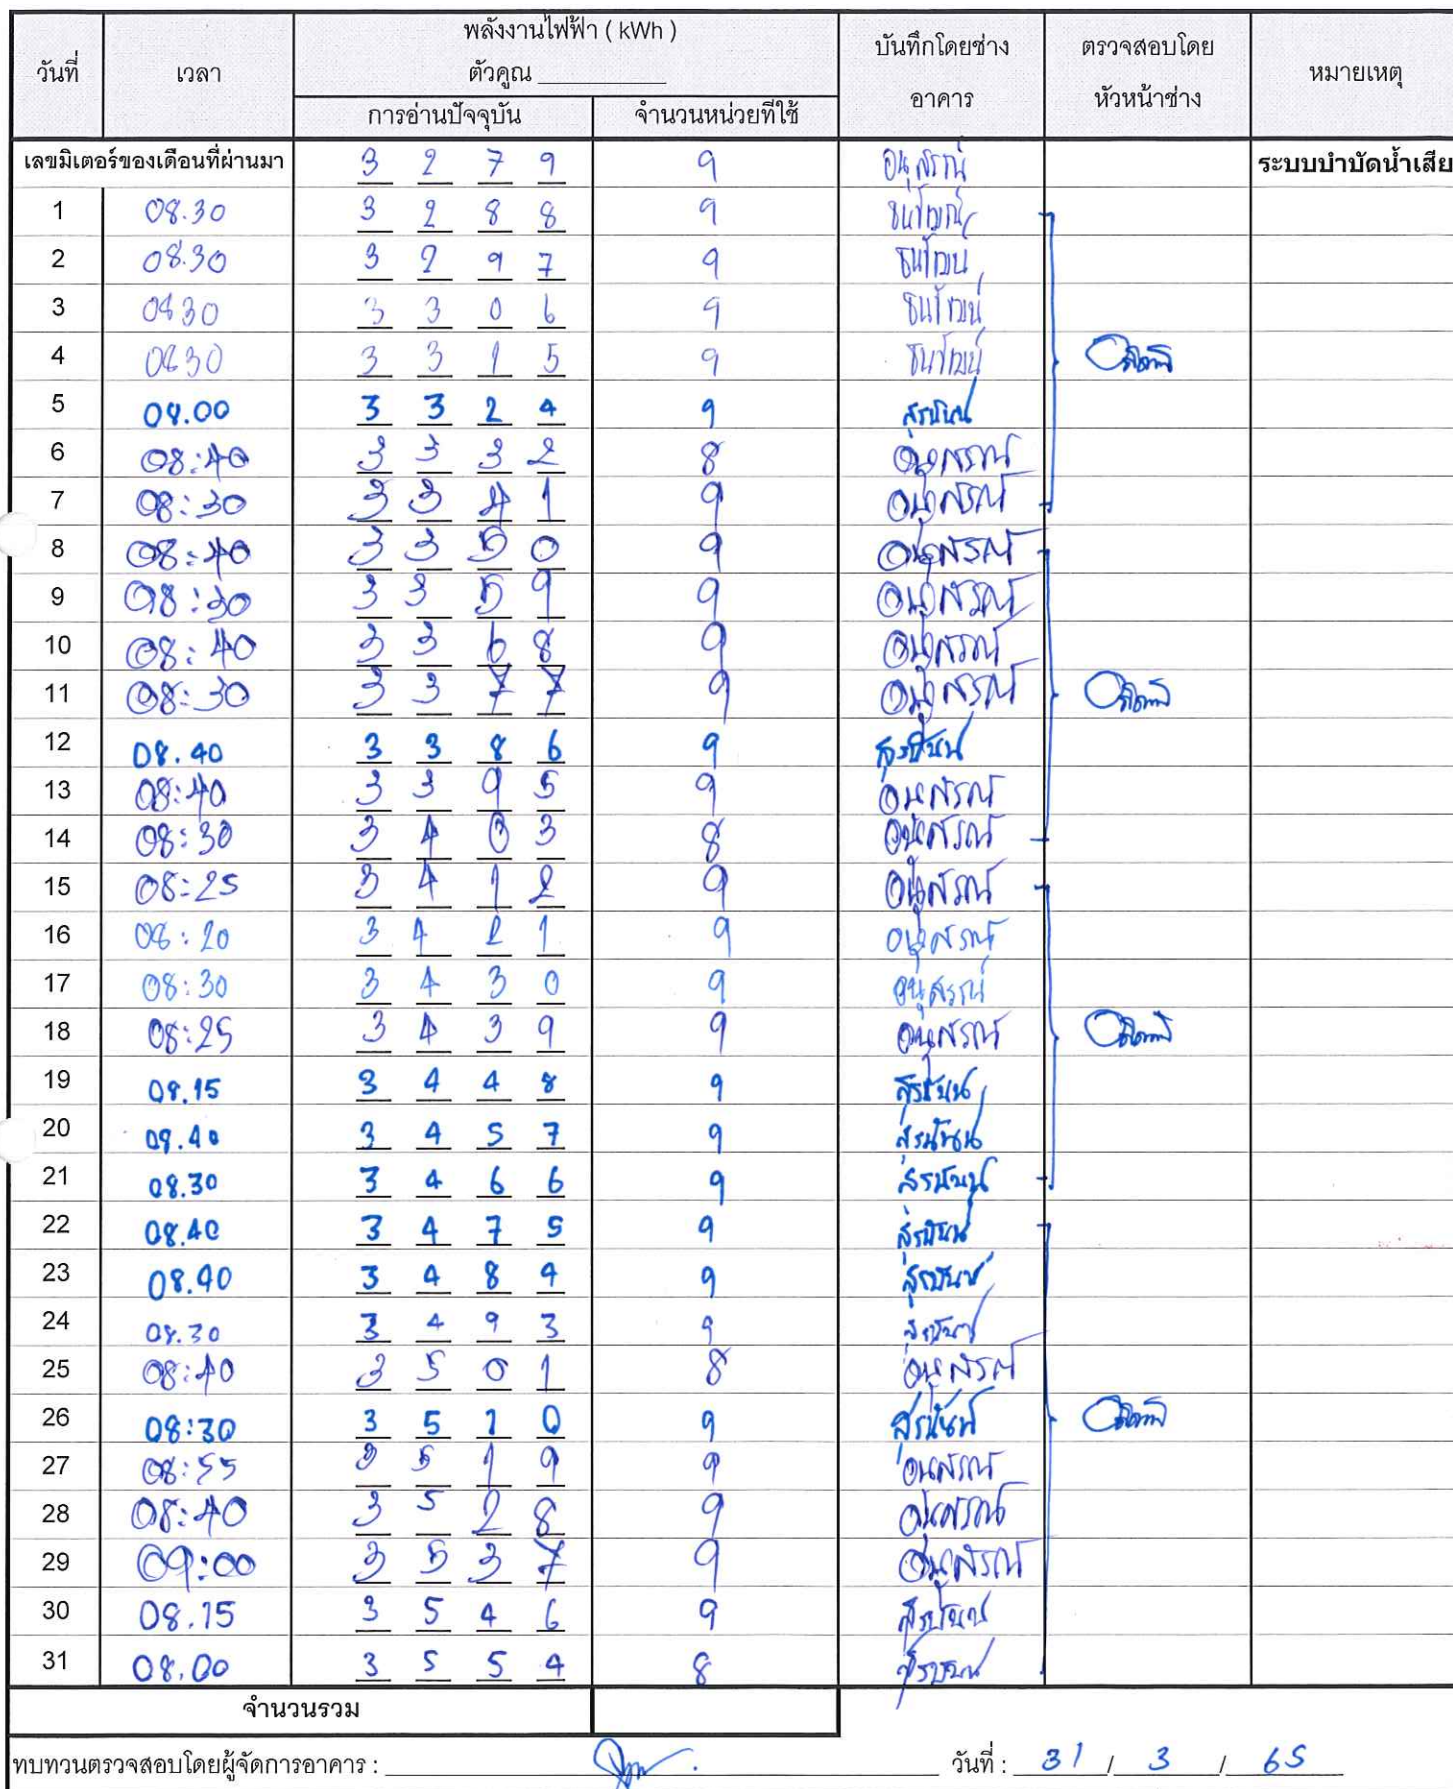 วันที่ เวลา พลังงานไฟฟ้า ( kWh ) บันทึกโดยช่างอาคาร ตรวจสอบโดยหัวหน้าช่าง หมายเหตุ
ตัวคูณ ________
การอ่านปัจจุบัน จำนวนหน่วยที่ใช้
เลขมิเตอร์ของเดือนที่ผ่านมา 3 2 7 9 9 อนุสรณ์ ระบบบำบัดน้ำเสีย
1 08.30 3 2 8 8 9
2 08.30 3 2 9 7 9
3 0830 3 3 0 6 9
4 0830 3 3 1 5 9
5 08.00 3 3 2 4 9
6 08:40 3 3 3 2 8 อนุสรณ์
7 08:30 3 3 4 1 9 อนุสรณ์
8 08:40 3 3 5 0 9 อนุสรณ์
9 08:30 3 3 5 9 9 อนุสรณ์
10 08:40 3 3 6 8 9 อนุสรณ์
11 08:30 3 3 7 7 9 อนุสรณ์
12 08.40 3 3 8 6 9
13 08:40 3 3 9 5 9 อนุสรณ์
14 08:30 3 4 0 3 8 อนุสรณ์
15 08:25 3 4 1 2 9 อนุสรณ์
16 08:20 3 4 2 1 9 อนุสรณ์
17 08:30 3 4 3 0 9 อนุสรณ์
18 08:25 3 4 3 9 9 อนุสรณ์
19 08.15 3 4 4 8 9
20 09.40 3 4 5 7 9
21 08.30 3 4 6 6 9
22 08.40 3 4 7 5 9
23 08.40 3 4 8 4 9
24 08.30 3 4 9 3 9
25 08:40 3 5 0 1 8 อนุสรณ์
26 08:30 3 5 1 0 9
27 08:55 3 5 1 9 9 อนุสรณ์
28 08:40 3 5 2 8 9 อนุสรณ์
29 09:00 3 5 3 7 9 อนุสรณ์
30 08.15 3 5 4 6 9
31 08.00 3 5 5 4 8
จำนวนรวม
ทบทวนตรวจสอบโดยผู้จัดการอาคาร : ________ วันที่ : 31 / 3 / 65